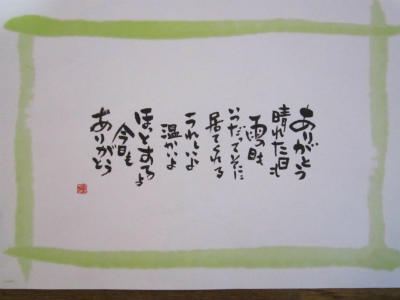 ありがとう
晴れた日も
雨の日も
いつだってそばに
居てくれる
うれしいよ
温かいよ
ほっとするよ
今日も
ありがとう